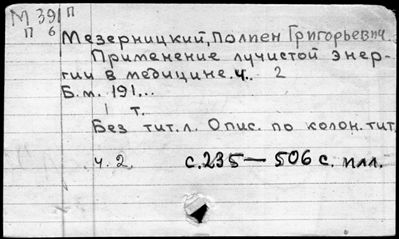 М 39 П
П 6
Мезерницкий, Полиен Григорьевич.
Применение лучистой энер-
гии в медицине. ч. 2
Б.м. 191...
1 т.
Без тит. л. Опис. по колон. тит.
ч. 2. с. 235 — 506 с. илл.